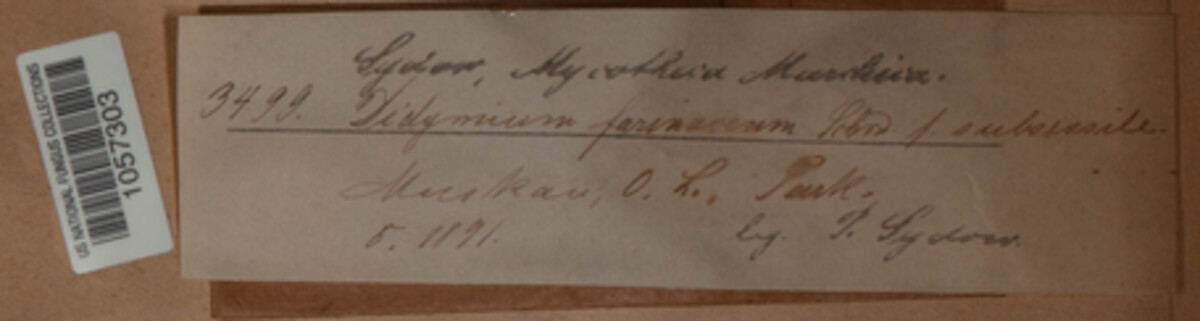 US NATIONAL FUNGUS COLLECTIONS
1057303
Sydow, Mycotheca Marchica.
3499. Didymium farinaceum Schrd. f. subsessile.
Muskau, O. L., Park.
5. 1891.
leg. P. Sydow.